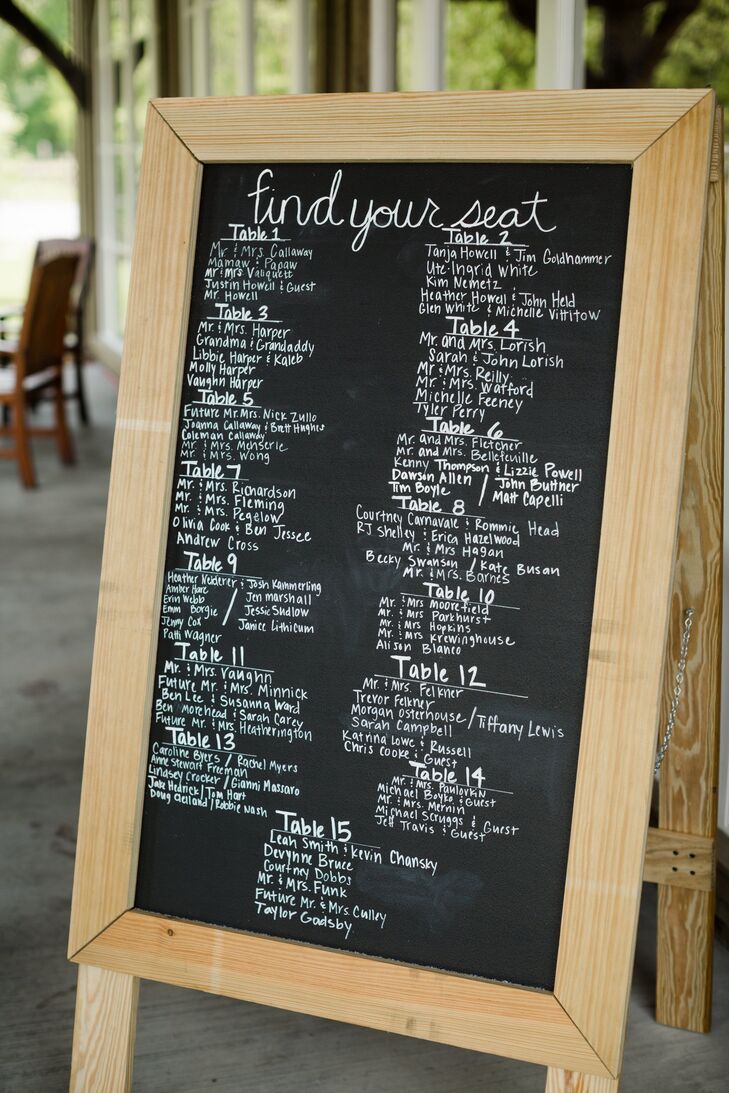 find your seat
Table 1
Mr. & Mrs. Callaway
Mamaw & Papaw
Mr & Mrs Valiquett
Justin Howell & Guest
Mr. Howell
Table 2
Tanja Howell & Jim Goldhammer
Ute Ingrid White
Kim Nemetz
Heather Howell & John Held
Glen White & Michelle Vittitow
Table 3
Mr. & Mrs. Harper
Grandma & Grandaddy
Libbie Harper & Kaleb
Molly Harper
Vaughn Harper
Table 4
Mr. and Mrs. Lorish
Sarah & John Lorish
Mr & Mrs. Reilly
Mr. & Mrs. Watford
Michelle Feeney
Tyler Perry
Table 5
Future Mr. & Mrs. Nick Zullo
Joanna Callaway & Brett Hughes
Coleman Callaway
Mr. & Mrs. Menserle
Mr. & Mrs. Wong
Table 6
Mr. and Mrs. Fletcher
Mr. and Mrs. Bellefeuille
Kenny Thompson & Lizzie Powell
Dawson Allen / John Buttner
Tim Boyle / Matt Capelli
Table 7
Mr. & Mrs. Richardson
Mr. & Mrs. Fleming
Mr. & Mrs. Pegelow
Olivia Cook & Ben Jessee
Andrew Cross
Table 8
Courtney Carnavale & Rommie Head
RJ Shelley & Erica Hazelwood
Mr. & Mrs Hagan
Becky Swanson / Kate Busan
Mr. & Mrs. Barnes
Table 9
Heather Neiderer & Josh Kammerling
Amber Hare
Erin Webb / Jen Marshall
Emm Borgie / Jessie Sudlow
Jenny Cox / Janice Lithicum
Patti Wagner
Table 10
Mr. & Mrs Moorefield
Mr. & Mrs Parkhurst
Mr. & Mrs Hopkins
Mr. & Mrs Krewinghouse
Alison Blanco
Table 11
Mr. & Mrs. Vaughn
Future Mr. & Mrs. Minnick
Ben Lee & Susanna Ward
Ben Morehead & Sarah Carey
Future Mr. & Mrs Heatherington
Table 12
Mr. & Mrs. Felkner
Trevor Felkner
Morgan Osterhouse / Tiffany Lewis
Sarah Campbell
Katrina Lowe & Russell
Chris Cooke & Guest
Table 13
Caroline Byers / Rachel Myers
Anne Stewart Freeman
Lindsey Crocker / Gianni Massaro
Jake Hedrick / Tom Hart
Doug Clelland / Robbie Nash
Table 14
Mr. & Mrs. Pavlovkin
Michael Boyko & Guest
Mr. & Mrs. Mernin
Michael Scruggs & Guest
Jeff Travis & Guest
Table 15
Leah Smith & Kevin Chansky
Devynne Bruce
Courtney Dobbs
Mr. & Mrs. Funk
Future Mr. & Mrs. Culley
Taylor Gadsby